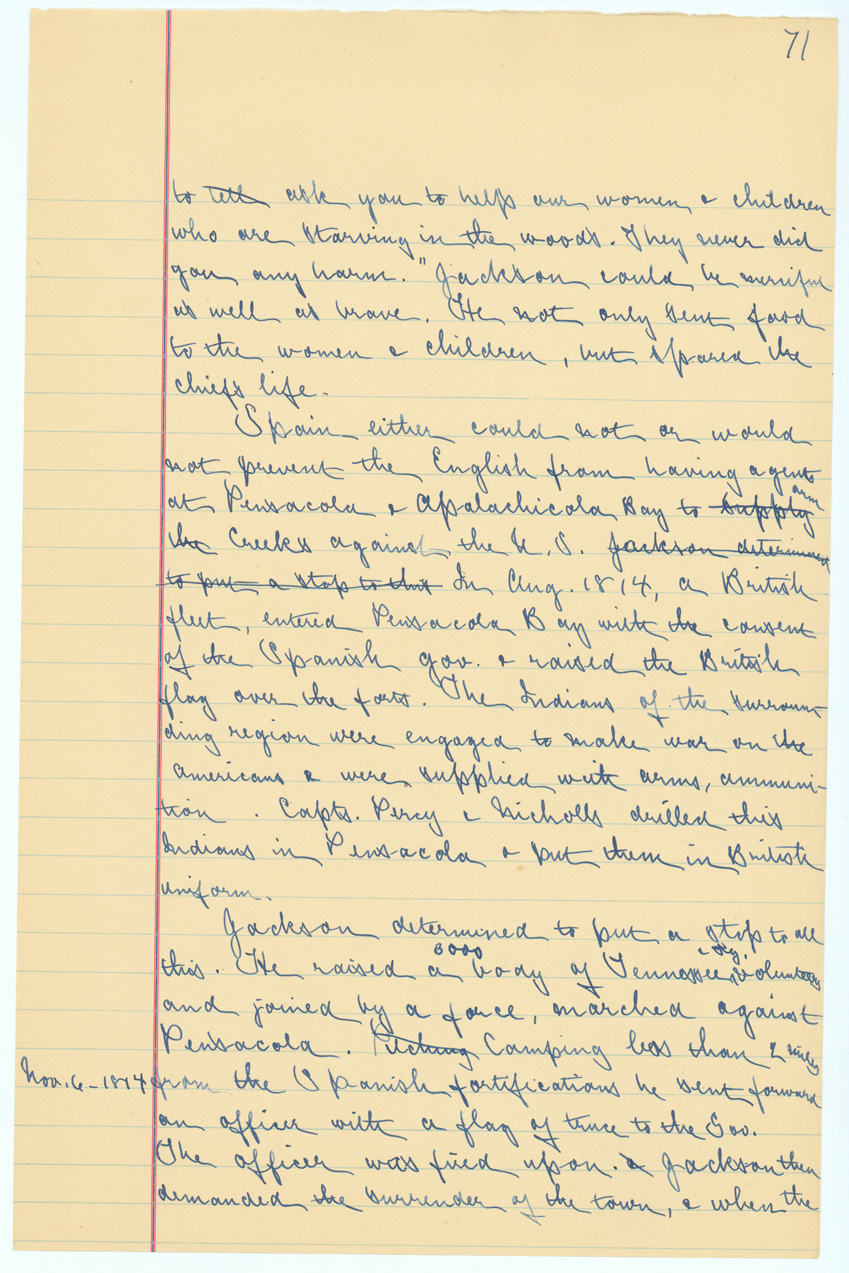 71
to tell ask you to help our women & children
who are starving in the woods. They never did
you any harm." Jackson could be merciful
as well as brave. He not only sent food
to the women & children, but spared the
chiefs life.
Spain either could not or would
not prevent the English from having agents
at Pensacola & Apalachicola Bay to supply arm
the Creeks against the U.S. Jackson determined
to put a stop to this In Aug. 1814, a British
fleet, entered Pensacola Bay with the consent
of the Spanish gov. & raised the British
flag over the forts. The Indians of the surroun-
ding region were engaged to make war on the
Americans & were supplied with arms, ammuni-
tion. Capts. Percy & Nicholls drilled this
Indians in Pensacola & put them in British
uniform.
Jackson determined to put a stop to all
this. He raised a 3000 body of Tennessee & Ky. volunteers
and joined by a force, marched against
Pensacola. Pitching Camping less than 2 miles
Nov. 6-1814 from the Spanish fortifications he sent forward
an officer with a flag of truce to the Gov.
The officer was fired upon. & Jackson then
demanded the surrender of the town, & when the